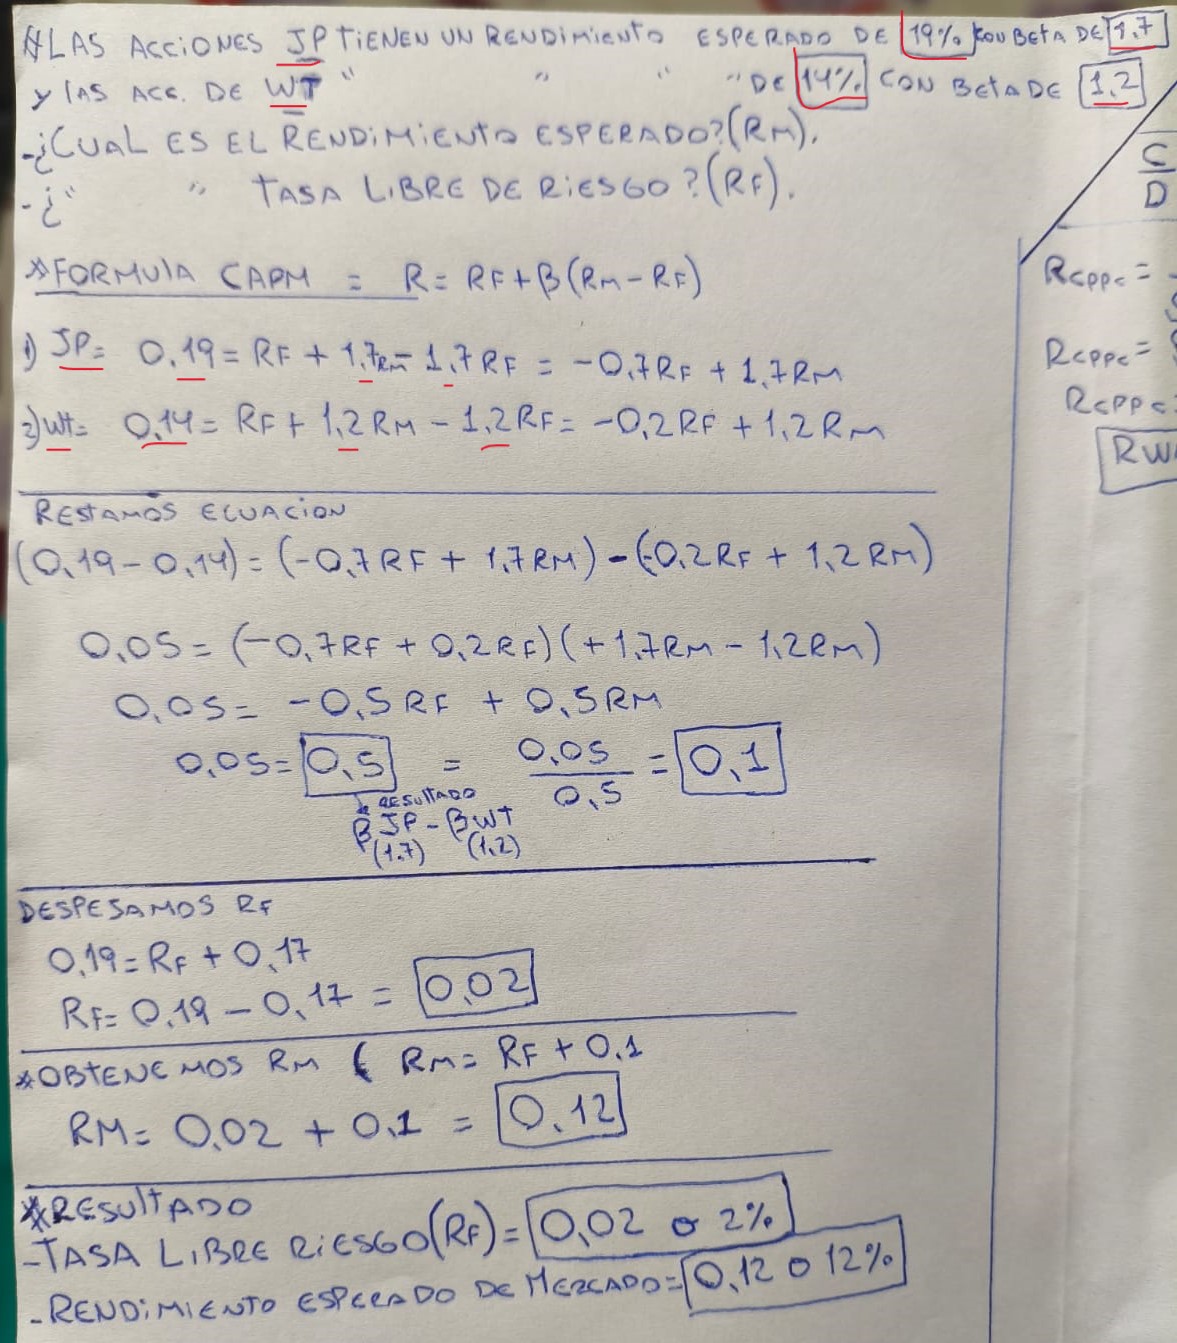 * LAS ACCIONES JP TIENEN UN RENDIMIENTO ESPERADO DE 19% CON BETA DE 1.7
Y LAS ACC. DE WT " " " " DE 14% CON BETA DE 1,2
- ¿CUAL ES EL RENDIMIENTO ESPERADO? (RM).
- ¿ " " TASA LIBRE DE RIESGO? (RF).
* FORMULA CAPM = R = RF + β (RM - RF)
1) JP = 0,19 = RF + 1,7RM - 1,7 RF = -0,7RF + 1,7RM
2) WT = 0,14 = RF + 1,2 RM - 1,2 RF = -0,2 RF + 1,2 RM
RESTAMOS ECUACION
(0,19 - 0,14) = (-0,7 RF + 1,7 RM) - (-0,2 RF + 1,2 RM)
0,05 = (-0,7RF + 0,2 RF) (+1,7RM - 1,2RM)
0,05 = -0,5 RF + 0,5 RM
0,05 = 0,5 = 0,05 / 0,5 = 0,1
RESULTADO
β JP - β WT
(1.7) (1.2)
DESPESAMOS RF
0,19 = RF + 0,17
RF = 0,19 - 0,17 = 0,02
* OBTENEMOS RM ( RM = RF + 0,1
RM = 0,02 + 0,1 = 0,12
* RESULTADO
- TASA LIBRE RIESGO (RF) = 0,02 o 2%
- RENDIMIENTO ESPERADO DE MERCADO = 0,12 o 12%
C
D
RCPPC =
RCPPC =
RCPPC =